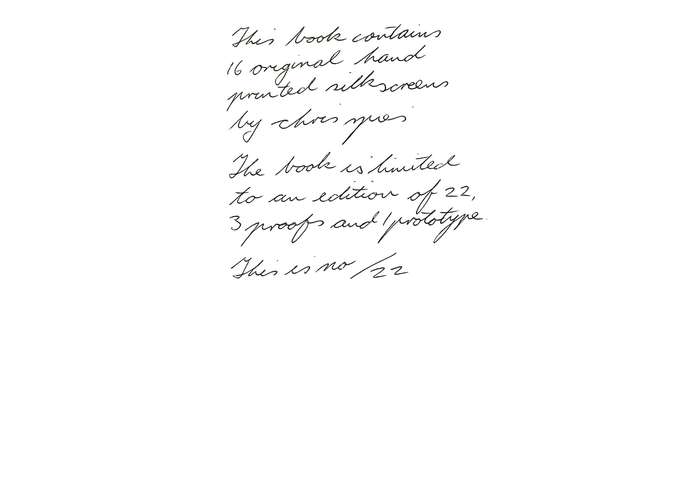 This book contains
16 original hand
printed silkscreens
by chris
The book is limited
to an edition of 22,
3 proofs and 1 prototype
This is no /22